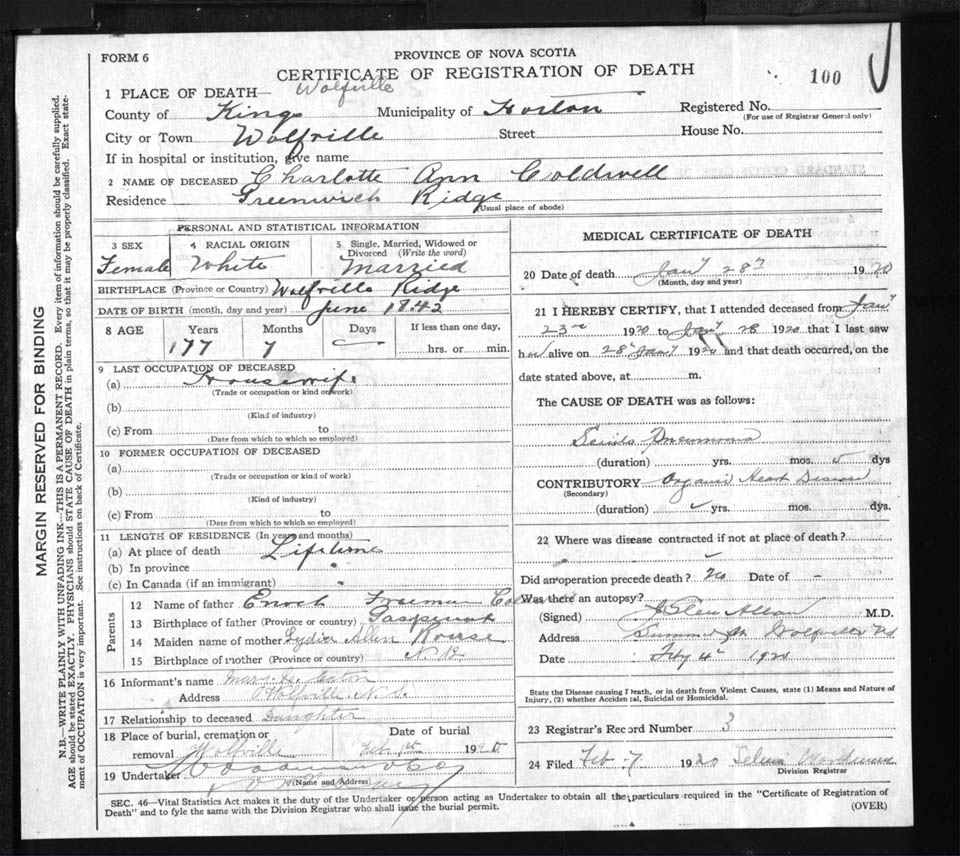 FORM 6
PROVINCE OF NOVA SCOTIA
CERTIFICATE OF REGISTRATION OF DEATH
100
1 PLACE OF DEATH— Wolfville
County of Kings Municipality of Horton Registered No.
(For use of Registrar General only)
City or Town Wolfville Street House No.
If in hospital or institution, give name
2 NAME OF DECEASED Charlotte Ann Coldwell
Residence Greenwich Ridge
(Usual place of abode)
PERSONAL AND STATISTICAL INFORMATION
3 SEX 4 RACIAL ORIGIN 5 Single, Married, Widowed or Divorced (Write the word)
Female White Married
BIRTHPLACE (Province or Country) Wolfville Ridge
DATE OF BIRTH (month, day and year) June 1842
8 AGE Years Months Days If less than one day,
77 7 hrs. or min.
9 LAST OCCUPATION OF DECEASED
(a) Housewife
(Trade or occupation or kind of work)
(b)
(Kind of industry)
(c) From to
(Date from which to which so employed)
10 FORMER OCCUPATION OF DECEASED
(a)
(Trade or occupation or kind of work)
(b)
(Kind of industry)
(c) From to
(Date from which to which so employed)
11 LENGTH OF RESIDENCE (In years and months)
(a) At place of death Lifetime
(b) In province
(c) In Canada (if an immigrant)
Parents
12 Name of father Enoch Freeman
13 Birthplace of father (Province or country) Gaspereau
14 Maiden name of mother Lydia Allen
15 Birthplace of mother (Province or country) N.B.
16 Informant's name
Address Wolfville N.S.
17 Relationship to deceased Daughter
18 Place of burial, cremation or removal Wolfville
Date of burial
Feb 1st 1920
19 Undertaker
(Name and Address)
MEDICAL CERTIFICATE OF DEATH
20 Date of death Jany 28th 1920
(Month, day and year)
21 I HEREBY CERTIFY, that I attended deceased from Jany
23rd 1920 to Jany 28 1920 that I last saw
her alive on 28 Jany 1920 and that death occurred, on the
date stated above, at m.
The CAUSE OF DEATH was as follows:
Senile Pneumonia
(duration) yrs. mos. dys
CONTRIBUTORY Organic Heart Disease
(Secondary)
(duration) yrs. mos. dys.
22 Where was disease contracted if not at place of death?
Did an operation precede death? No Date of –
Was there an autopsy?
(Signed) M.D.
Address Wolfville NS
Date Feby 4th 1920
State the Disease causing Death, or in death from Violent Causes, state (1) Means and Nature of
Injury, (2) whether Accidental, Suicidal or Homicidal.
23 Registrar's Record Number 3
24 Filed Feb. 7 1920
Division Registrar
SEC. 46—Vital Statistics Act makes it the duty of the Undertaker or person acting as Undertaker to obtain all the particulars required in the "Certificate of Registration of
Death" and to fyle the same with the Division Registrar who shall issue the burial permit.
(OVER)
MARGIN RESERVED FOR BINDING
N.B.—WRITE PLAINLY WITH UNFADING INK—THIS IS A PERMANENT RECORD. Every item of information should be carefully supplied.
AGE should be stated EXACTLY. PHYSICIANS should STATE CAUSE OF DEATH in plain terms, so that it may be properly classified. Exact state-
ment of OCCUPATION is very important. See instructions on back of Certificate.